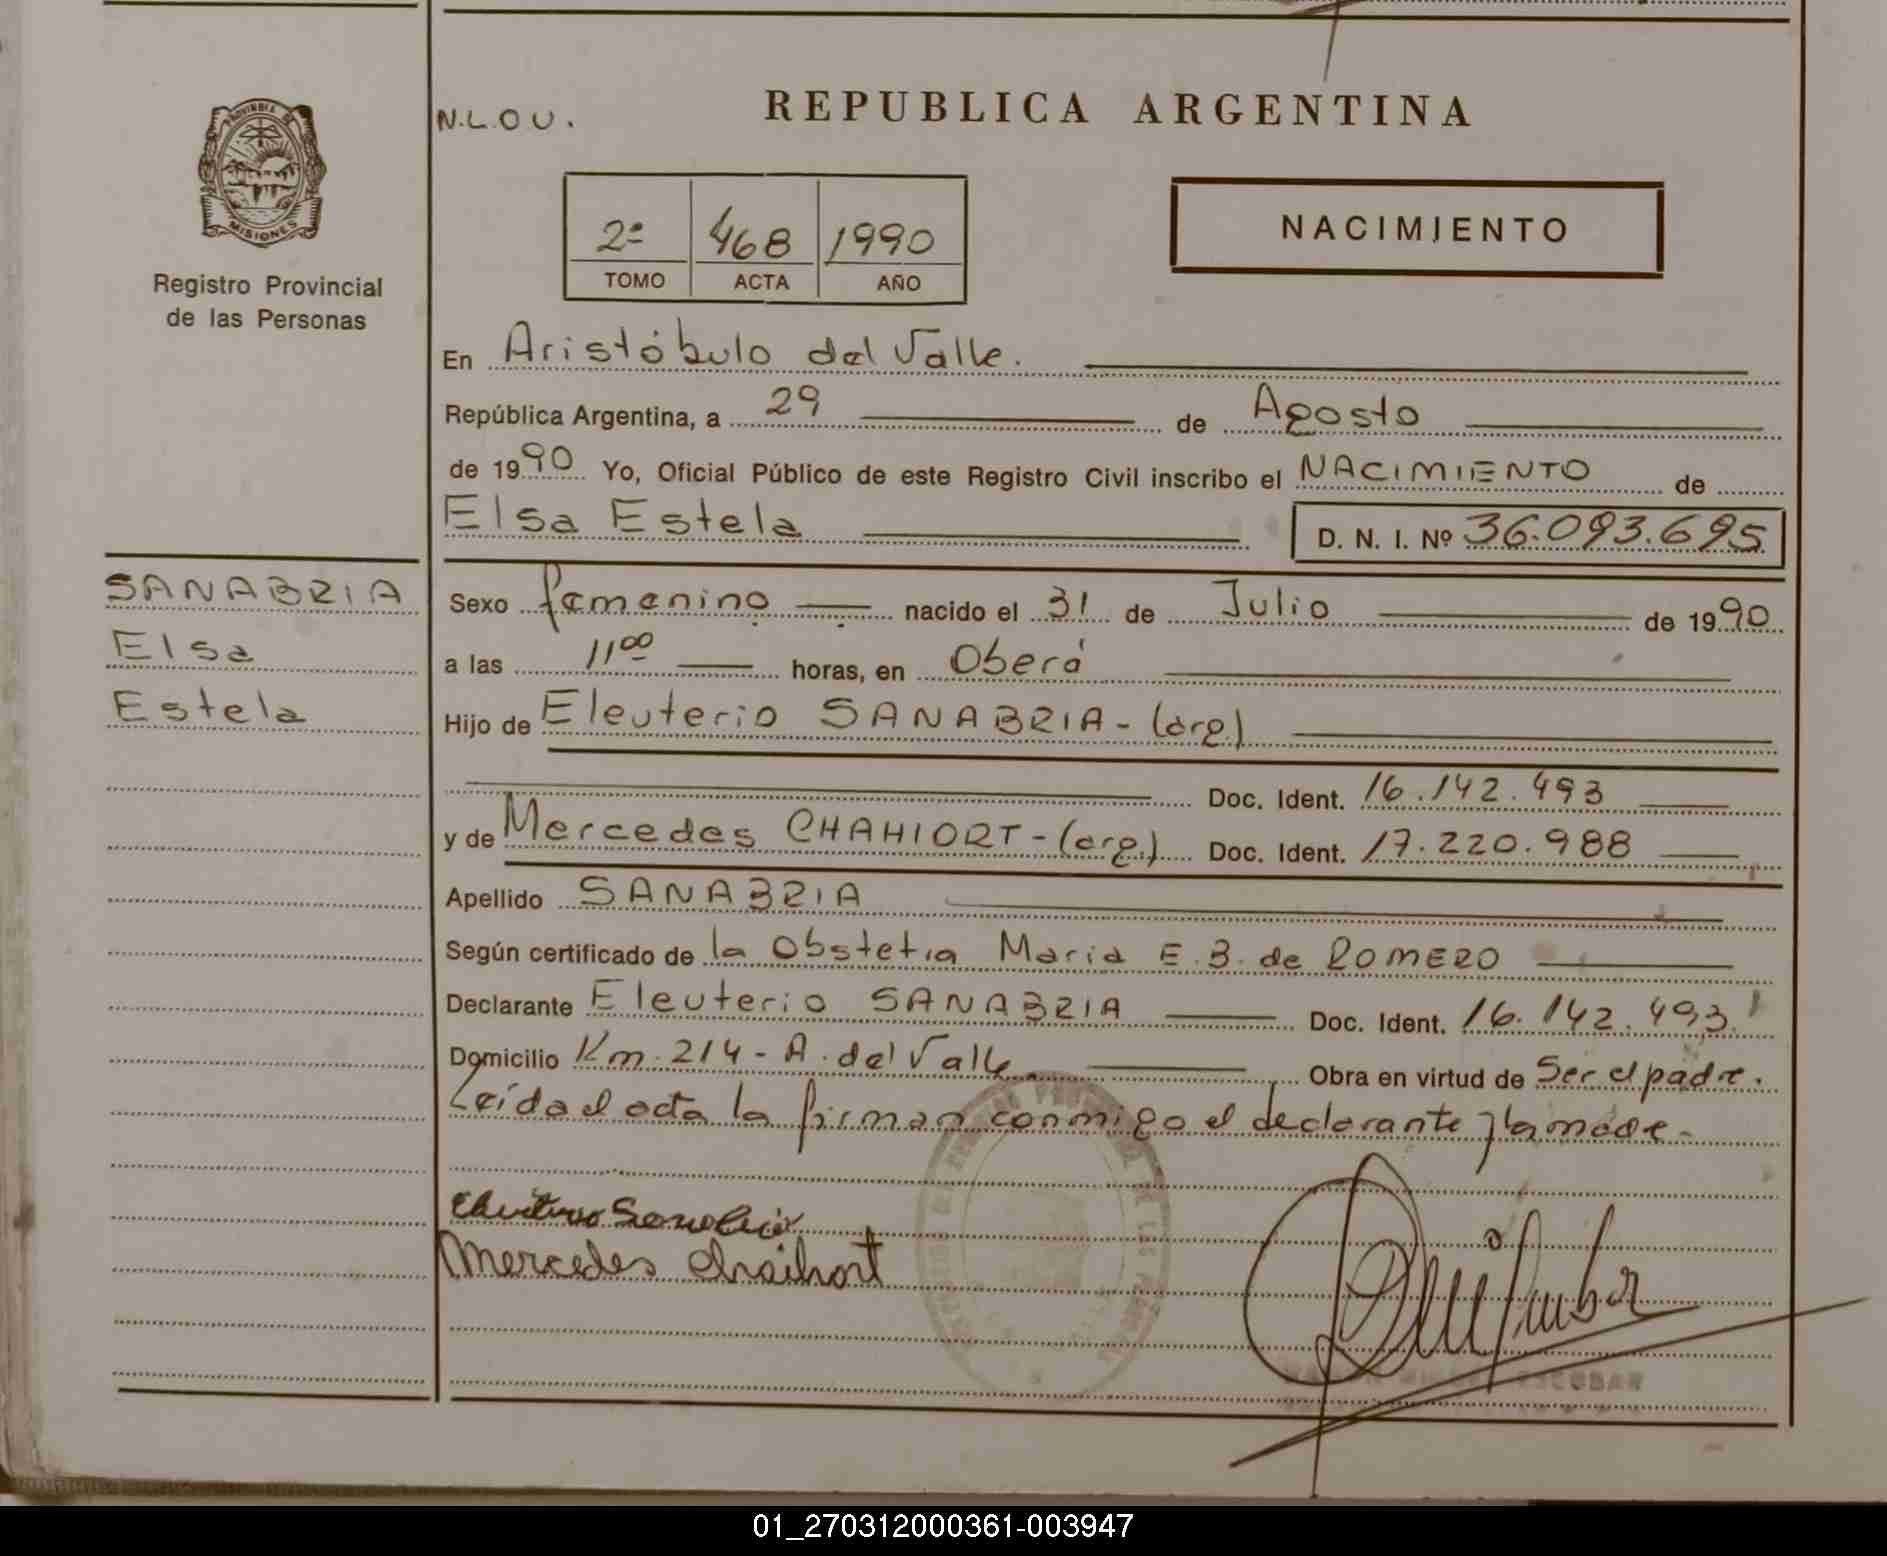 PROVINCIA DE
MISIONES
Registro Provincial
de las Personas
N.L.O U.
REPUBLICA ARGENTINA
2º 468 1990
TOMO ACTA AÑO
NACIMIENTO
En Aristóbulo del Valle.
República Argentina, a 29 de Agosto
de 1990 Yo, Oficial Público de este Registro Civil inscribo el NACIMIENTO de
Elsa Estela D. N. I. Nº 36.093.695
SANABRIA
Elsa
Estela
Sexo femenino nacido el 31 de Julio de 1990
a las 11 00 horas, en Oberá
Hijo de Eleuterio SANABRIA - (arg.)
Doc. Ident. 16.142.493
y de Mercedes CHAHIORT - (arg.) Doc. Ident. 17.220.988
Apellido SANABRIA
Según certificado de la Obstetia Maria E. B. de ROMERO
Declarante Eleuterio SANABRIA Doc. Ident. 16.142.493
Domicilio Km. 214 - A. del Valle Obra en virtud de Ser el padre.
Leída el acta la firman conmigo el declarante y la madre.
Mercedes Chaihort
ESCOBAR
01_270312000361-003947